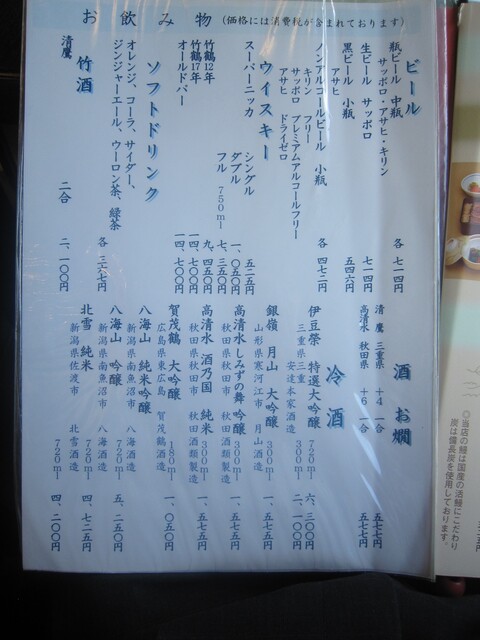 お飲み物 (価格には消費税が含まれております)
ビール
瓶ビール 中瓶
サッポロ・アサヒ・キリン 各 七一四円
生ビール サッポロ 七一四円
黒ビール 小瓶
アサヒ 五四六円
ノンアルコールビール 小瓶
キリン フリー
サッポロ プレミアムアルコールフリー
アサヒ ドライゼロ 各 四七二円
ウイスキー
スーパーニッカ シングル 五二五円
ダブル 一、〇五〇円
フル 750ml 七、三五〇円
竹鶴12年 九、四五〇円
竹鶴17年 一四、七〇〇円
オールドパー 一四、七〇〇円
ソフトドリンク
オレンジ、コーラ、サイダー、
ジンジャーエール、ウーロン茶、緑茶 各 三六七円
竹酒
清鷹 二合 二、一〇〇円
酒 お燗
清鷹 三重県 +4 一合 五七七円
高清水 秋田県 +6 一合 五七七円
冷酒
伊豆榮 特選大吟醸 720ml 六、三〇〇円
三重県三重 安達本家酒造 300ml 二、一〇〇円
銀嶺 月山 大吟醸 300ml 一、五七五円
山形県寒河江市 月山酒造
高清水 しみずの舞 吟醸 300ml 一、五七五円
秋田県秋田市 秋田酒類製造
高清水 酒乃国 純米 300ml 一、五七五円
秋田県秋田市 秋田酒類製造
賀茂鶴 大吟醸 180ml 一、〇五〇円
広島県東広島 賀茂鶴酒造
八海山 純米吟醸
新潟県南魚沼市 八海酒造
八海山 吟醸 720ml 五、二五〇円
新潟県南魚沼市 八海酒造
北雪 純米 720ml 四、七二五円
新潟県佐渡市 北雪酒造 720ml 四、二〇〇円
◎当店の鰻は国産の活鰻にこだわり
炭は備長炭を使用しております。